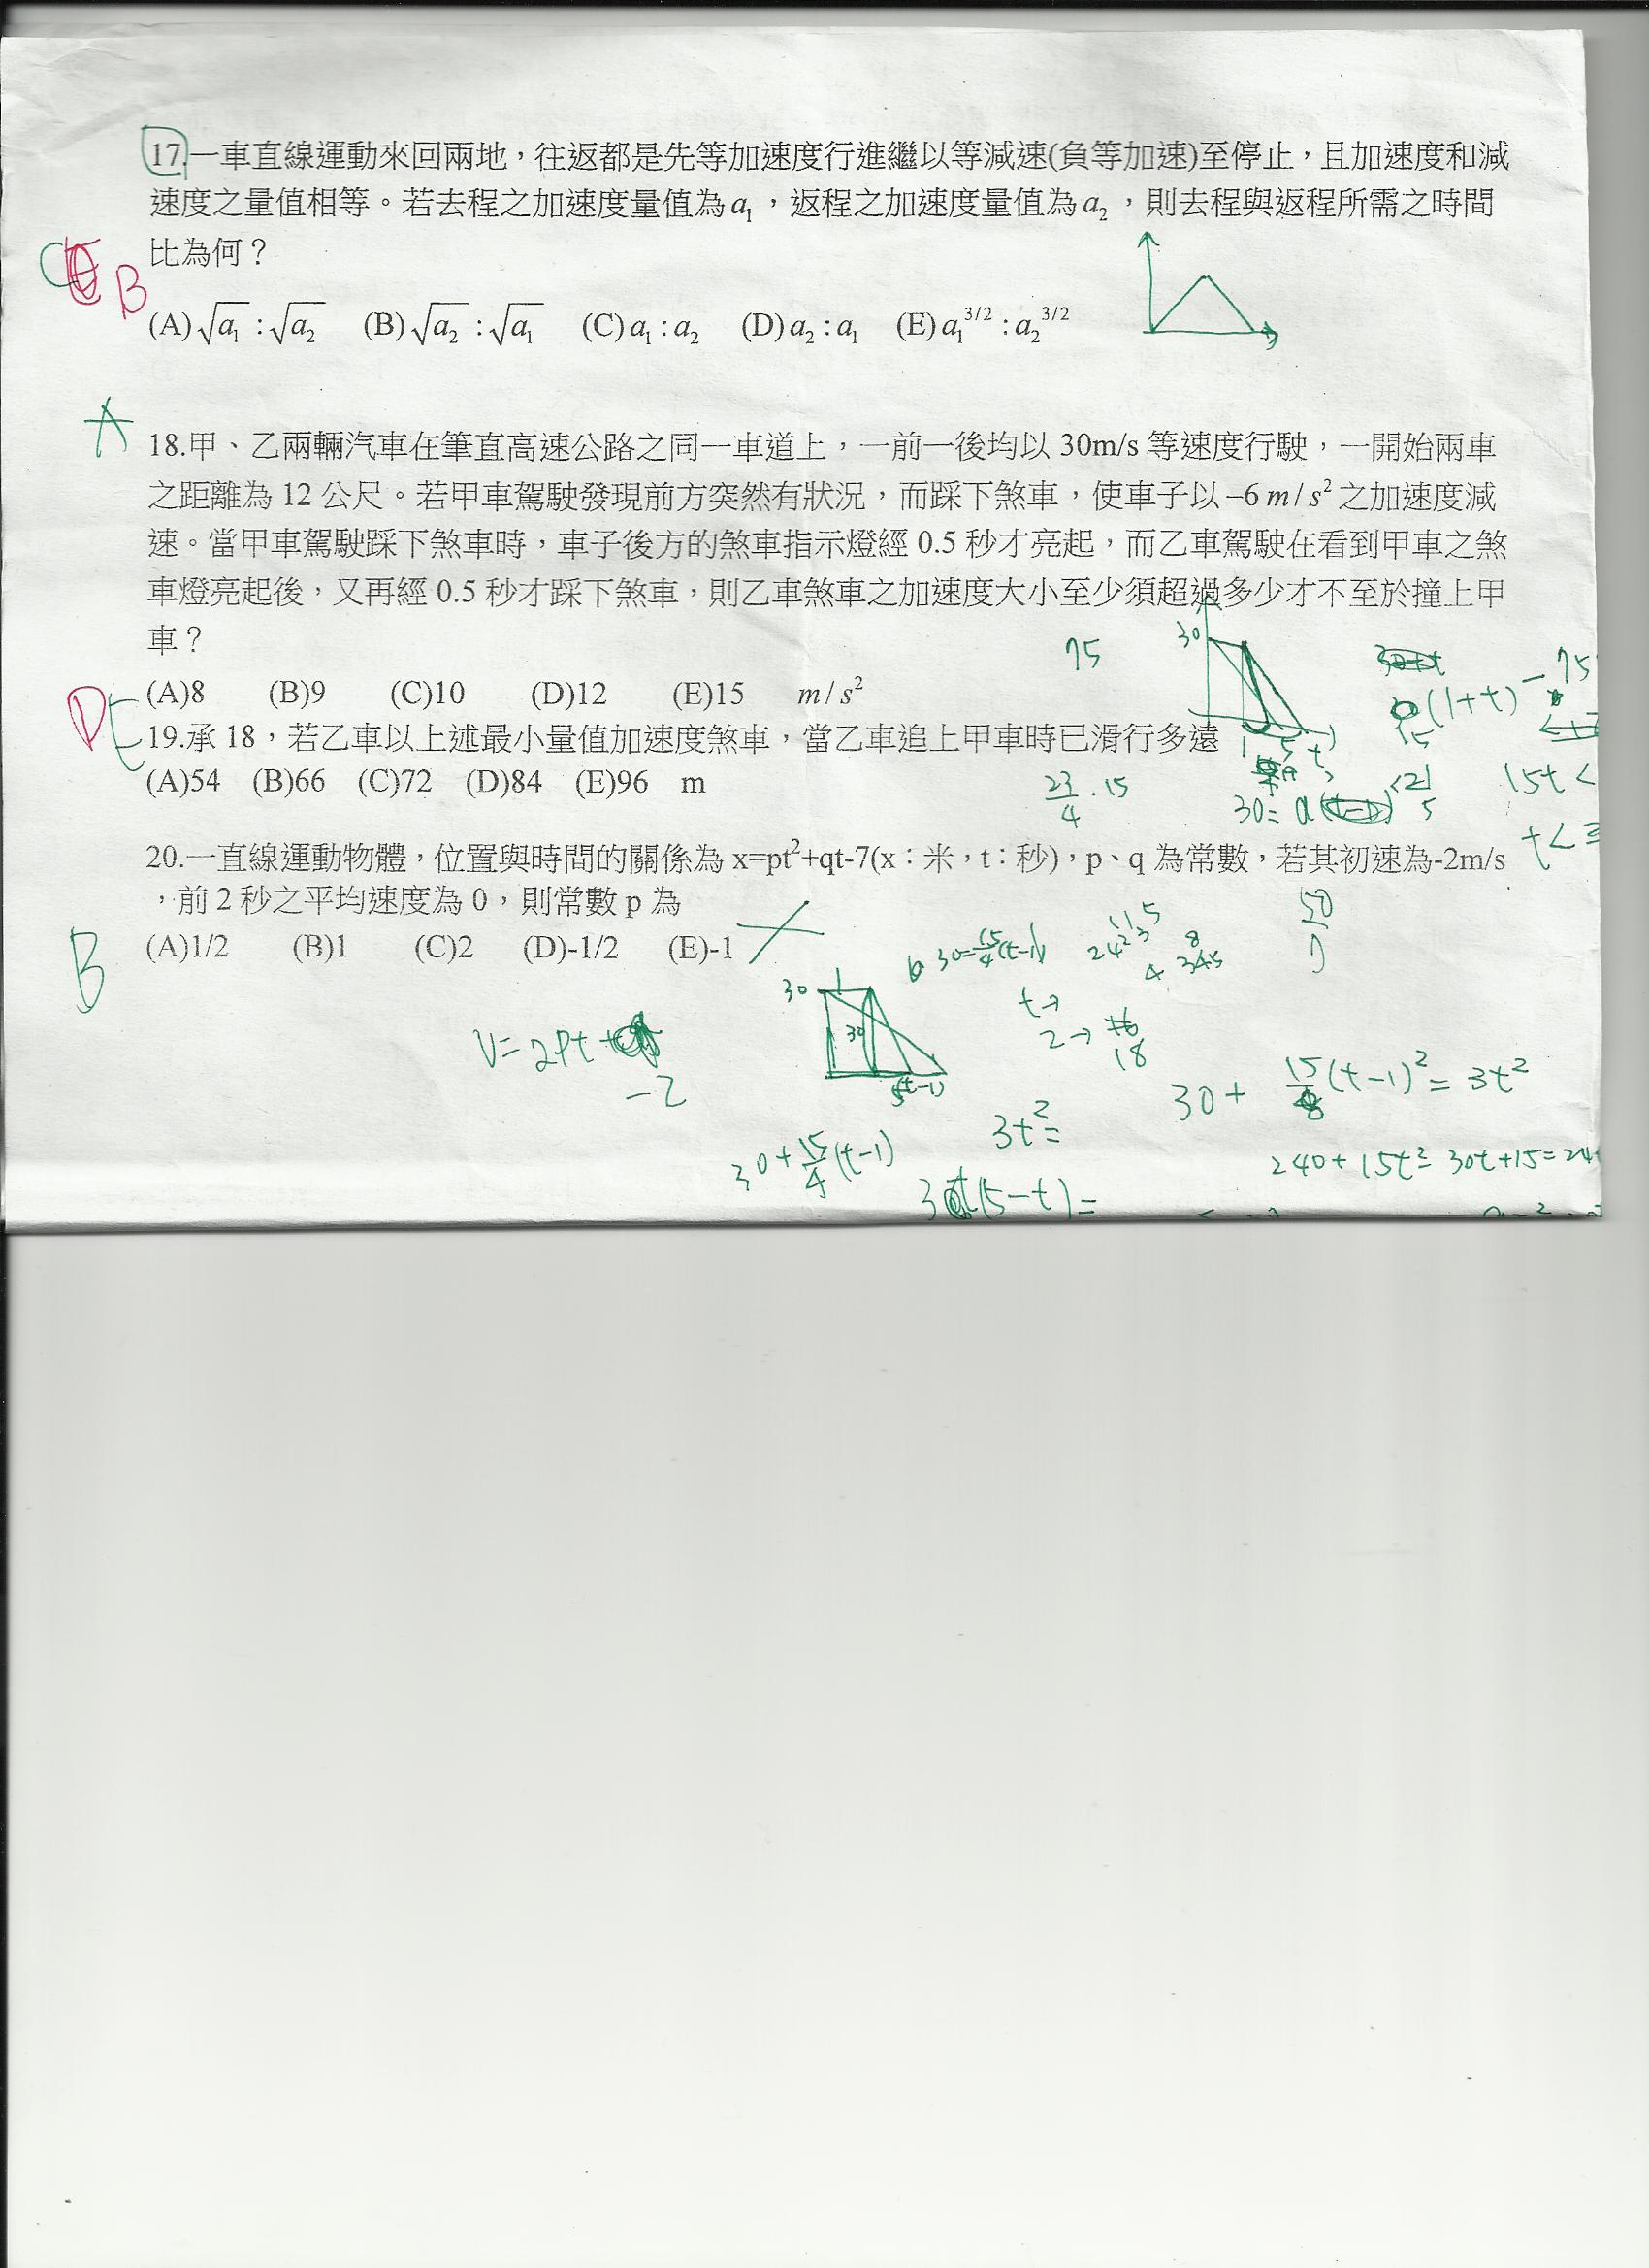 17.一車直線運動來回兩地，往返都是先等加速度行進繼以等減速(負等加速)至停止，且加速度和減
速度之量值相等。若去程之加速度量值為a₁，返程之加速度量值為a₂，則去程與返程所需之時間
比為何？
B
(A)√a₁:√a₂ (B)√a₂:√a₁ (C)a₁:a₂ (D)a₂:a₁ (E)a₁^3/2:a₂^3/2
A
18.甲、乙兩輛汽車在筆直高速公路之同一車道上，一前一後均以 30m/s 等速度行駛，一開始兩車
之距離為 12 公尺。若甲車駕駛發現前方突然有狀況，而踩下煞車，使車子以 –6 m/s² 之加速度減
速。當甲車駕駛踩下煞車時，車子後方的煞車指示燈經 0.5 秒才亮起，而乙車駕駛在看到甲車之煞
車燈亮起後，又再經 0.5 秒才踩下煞車，則乙車煞車之加速度大小至少須超過多少才不至於撞上甲
車？
75
30
(A)8 (B)9 (C)10 (D)12 (E)15 m/s²
(1+t) - 75
15
D E
19.承 18，若乙車以上述最小量值加速度煞車，當乙車追上甲車時已滑行多遠
1 5 t
(A)54 (B)66 (C)72 (D)84 (E)96 m
23/4 · 15
<21
5
15t <
30= a
20.一直線運動物體，位置與時間的關係為 x=pt²+qt-7(x：米，t：秒)，p、q 為常數，若其初速為-2m/s
t<
，前 2 秒之平均速度為 0，則常數 p 為
B
(A)1/2 (B)1 (C)2 (D)-1/2 (E)-1
30=15/4(t-1)
30
30
V=2Pt +
-2
5(t-1)
t→
2→
18
30+ 15/8(t-1)²= 3t²
3t²=
30+15/4(t-1)
240+15t²- 30t+15=24
(5-t)=